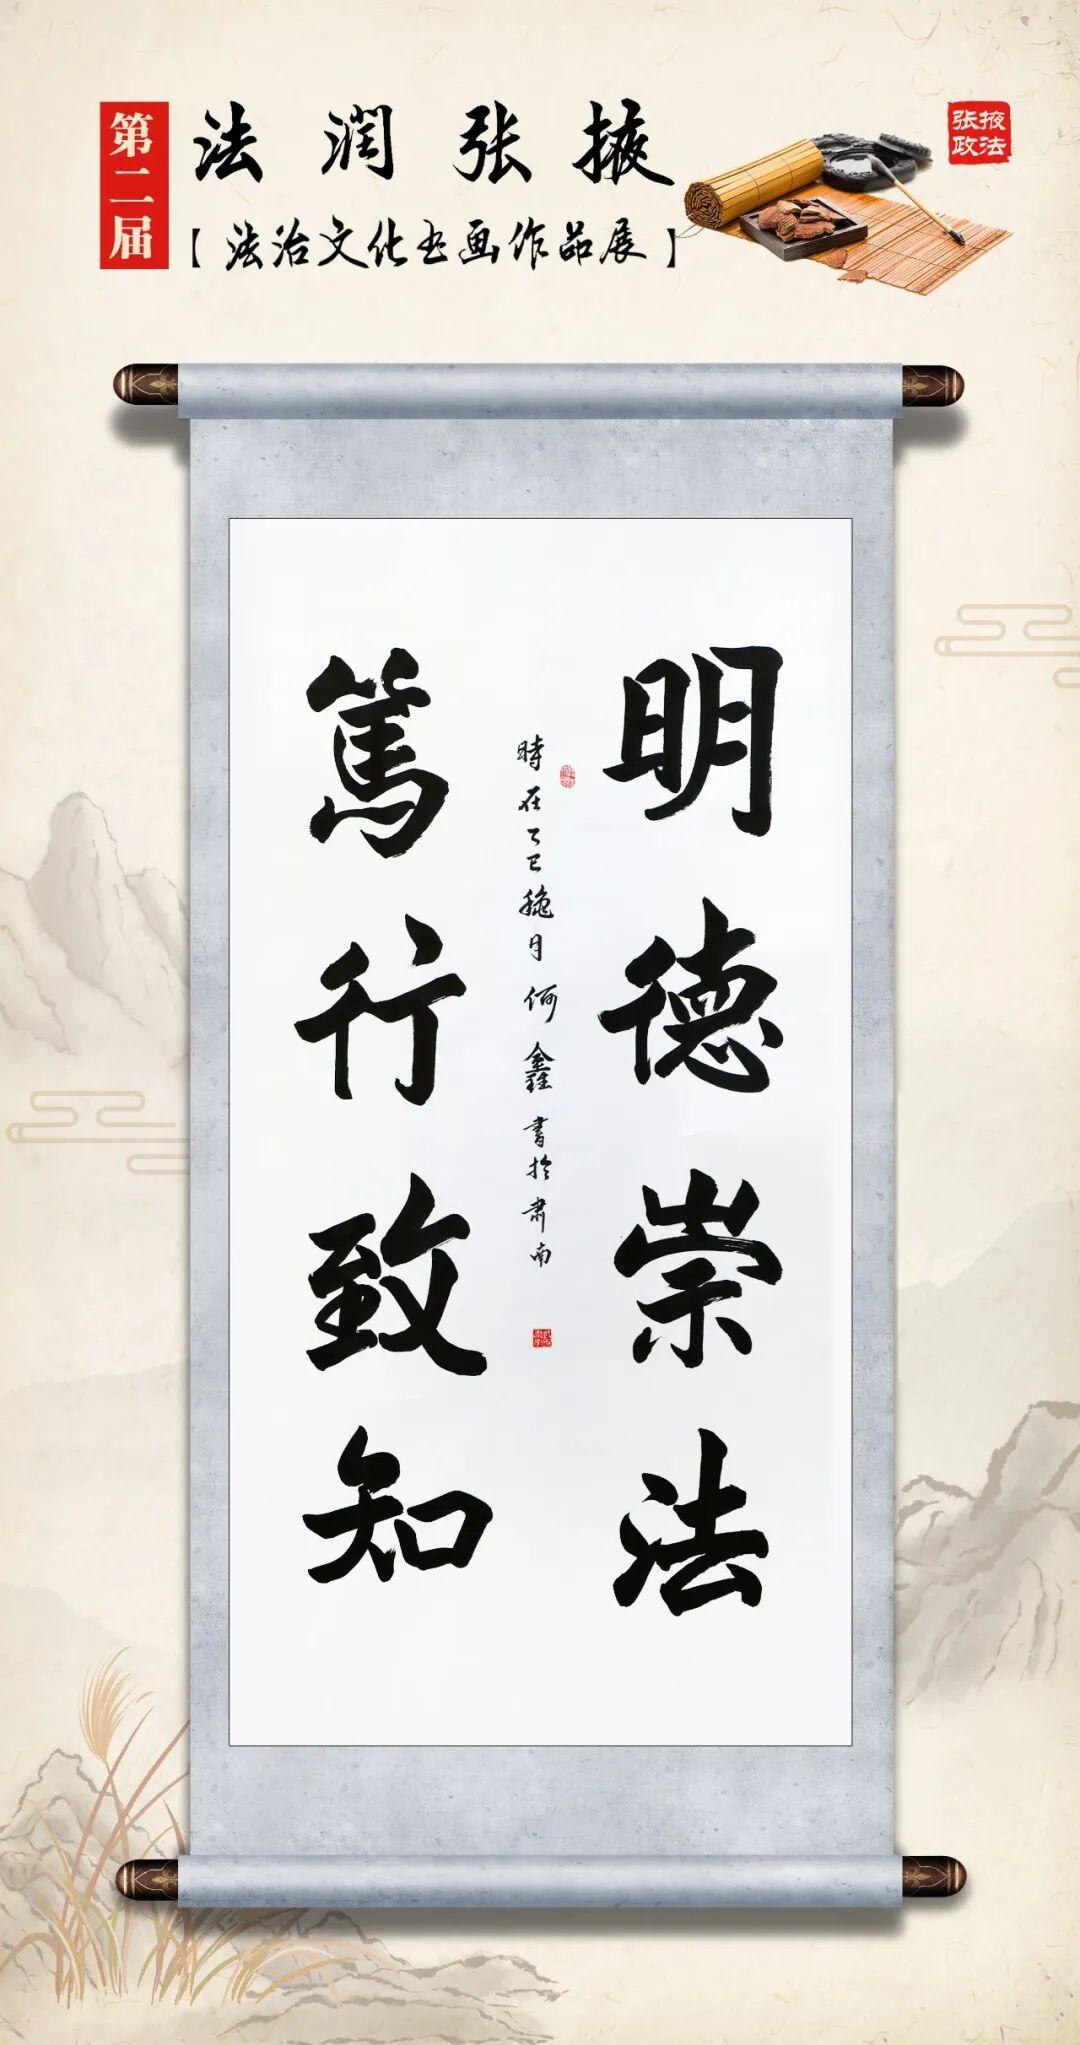 第二届
法润张掖
【法治文化书画作品展】
张掖
政法
明德崇法
時在乙巳穐月何鑫書於肃南
篤行致知